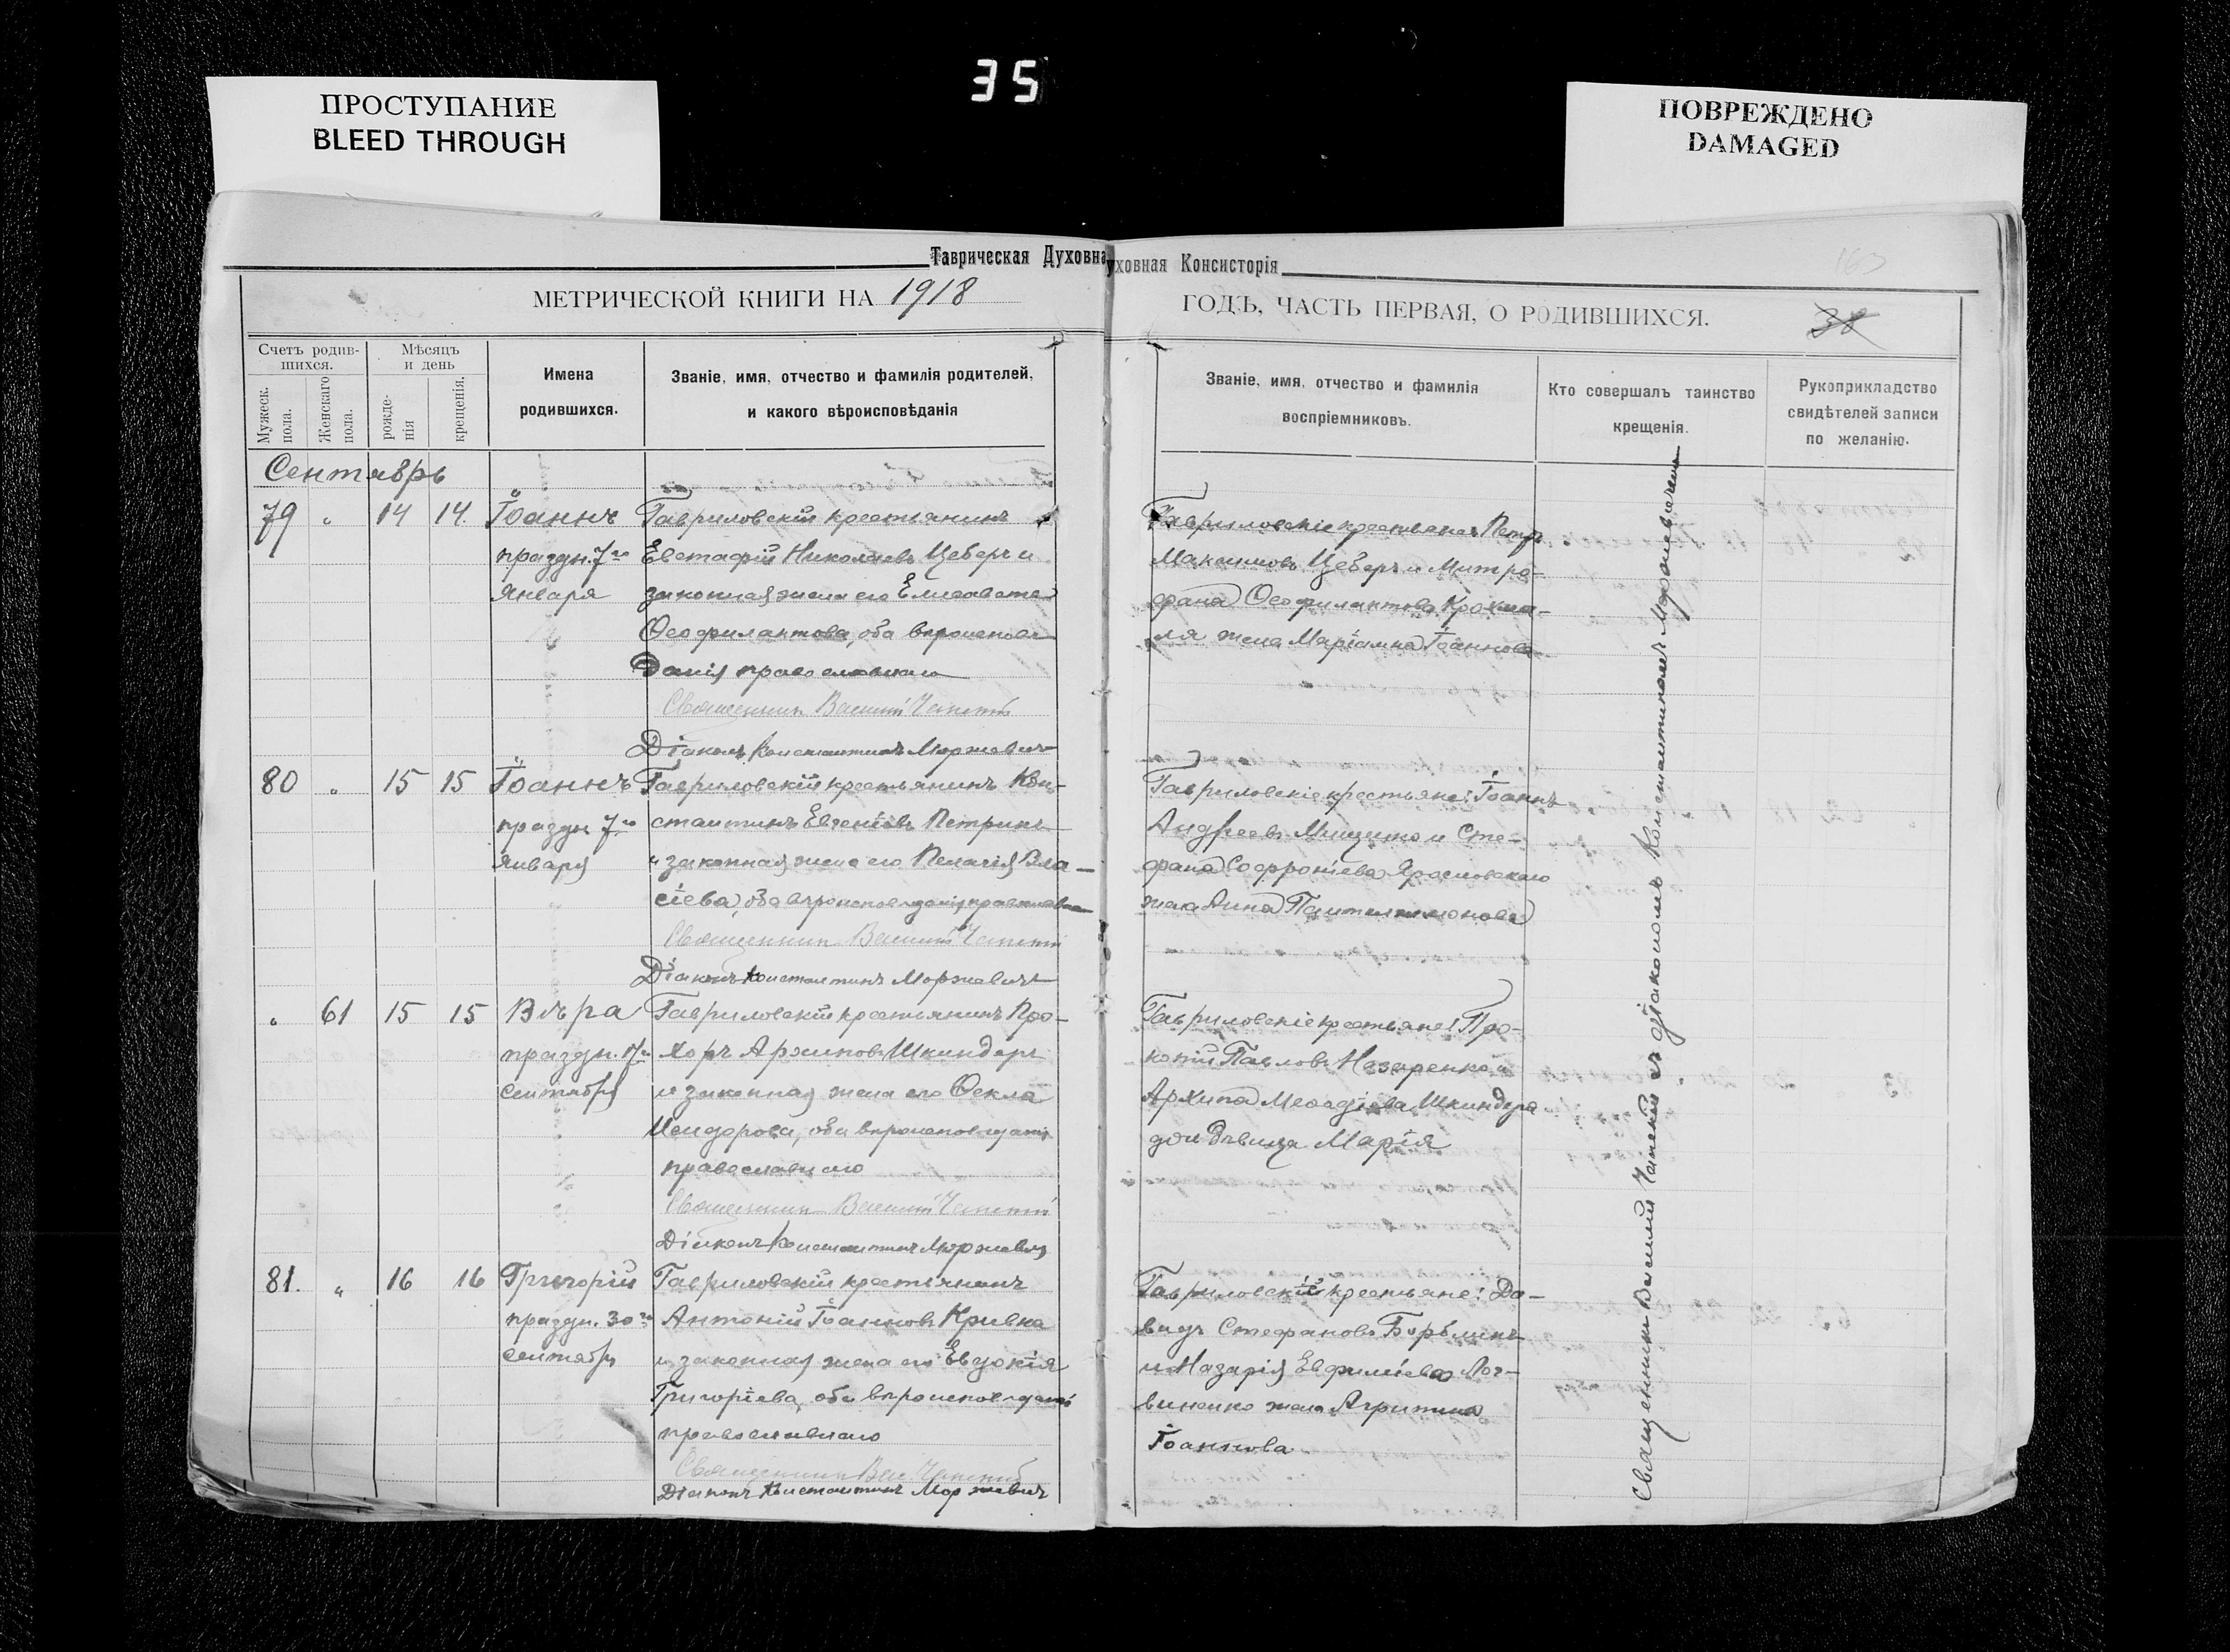 35
ПРОСТУПАНИЕ
BLEED THROUGH
ПОВРЕЖДЕНО
DAMAGED
Таврическая Духовна
уховная Консисторія
МЕТРИЧЕСКОЙ КНИГИ НА 1918
ГОДЪ, ЧАСТЬ ПЕРВАЯ, О РОДИВШИХСЯ.
38
Счетъ родив-
шихся.
Мужеск. пола.
Женскаго пола.
Мѣсяцъ
и день
рожде-
нія
крещенія.
Имена
родившихся.
Званіе, имя, отчество и фамилія родителей,
и какого вѣроисповѣданія
Званіе, имя, отчество и фамилія
воспріемниковъ.
Кто совершалъ таинство
крещенія.
Рукоприкладство
свидѣтелей записи
по желанію.
Сентябрь
79 " 14 14. Іоаннъ
праздн. 7го
Января
Гавриловскій крестьянинъ
Евстафій Николаевъ Цеберъ и
законная жена его Елисавета
Ѳеофилактова, оба вѣроиспове
данія православнаго
Священникъ Василій
Діаконъ Константинъ Моржевичъ
Гавриловскіе крестьяне: Петръ
Максимовъ Цеберъ и Митро-
фана Ѳеофилактова Крохма-
ля жена Маріамна Іоаннова
80 " 15 15 Іоаннъ
праздн 7го
Января
Гавриловскій крестьянинъ Кон-
стантинъ Евгеніевъ Петринъ
и законная жена его Пелагія Вла-
сіева, оба вѣроисповѣданія православна
Священникъ Василій
Діаконъ Константинъ Моржевичъ
Гавриловскіе крестьяне: Іоаннъ
Андреевъ Мищенко и Сте-
фана Софроніева Ярославскаго
жена Анна Пантелеимонова
" 61 15 15 Вѣра
праздн. 17го
Сентября
Гавриловскій крестьянинъ Про-
хоръ Архиповъ Шкиндеръ
и законная жена его Ѳекла
Исидорова, оба вѣроисповѣданія
православнаго
Священникъ Василій
Діаконъ Константинъ Моржевичъ
Гавриловскіе крестьяне: Про-
копій Павловъ Назаренко и
Архипа Меѳодіева Шкиндера
дочь дѣвица Марія
81. " 16 16 Григорій
праздн. 30го
сентября
Гавриловскій крестьянинъ
Антоній Іоанновъ Кривка
и законная жена его Евдокія
Григоріева, оба вѣроисповѣданія
православнаго
Священникъ Вас.
Діаконъ Константинъ Моржевичъ
Гавриловскіе крестьяне: Да-
видъ Стефановъ
и Назарія Евфиміева Лог-
виненко жена Агриппина
Іоаннова
Священникъ Василій съ діакономъ Константиномъ Моржевичемъ